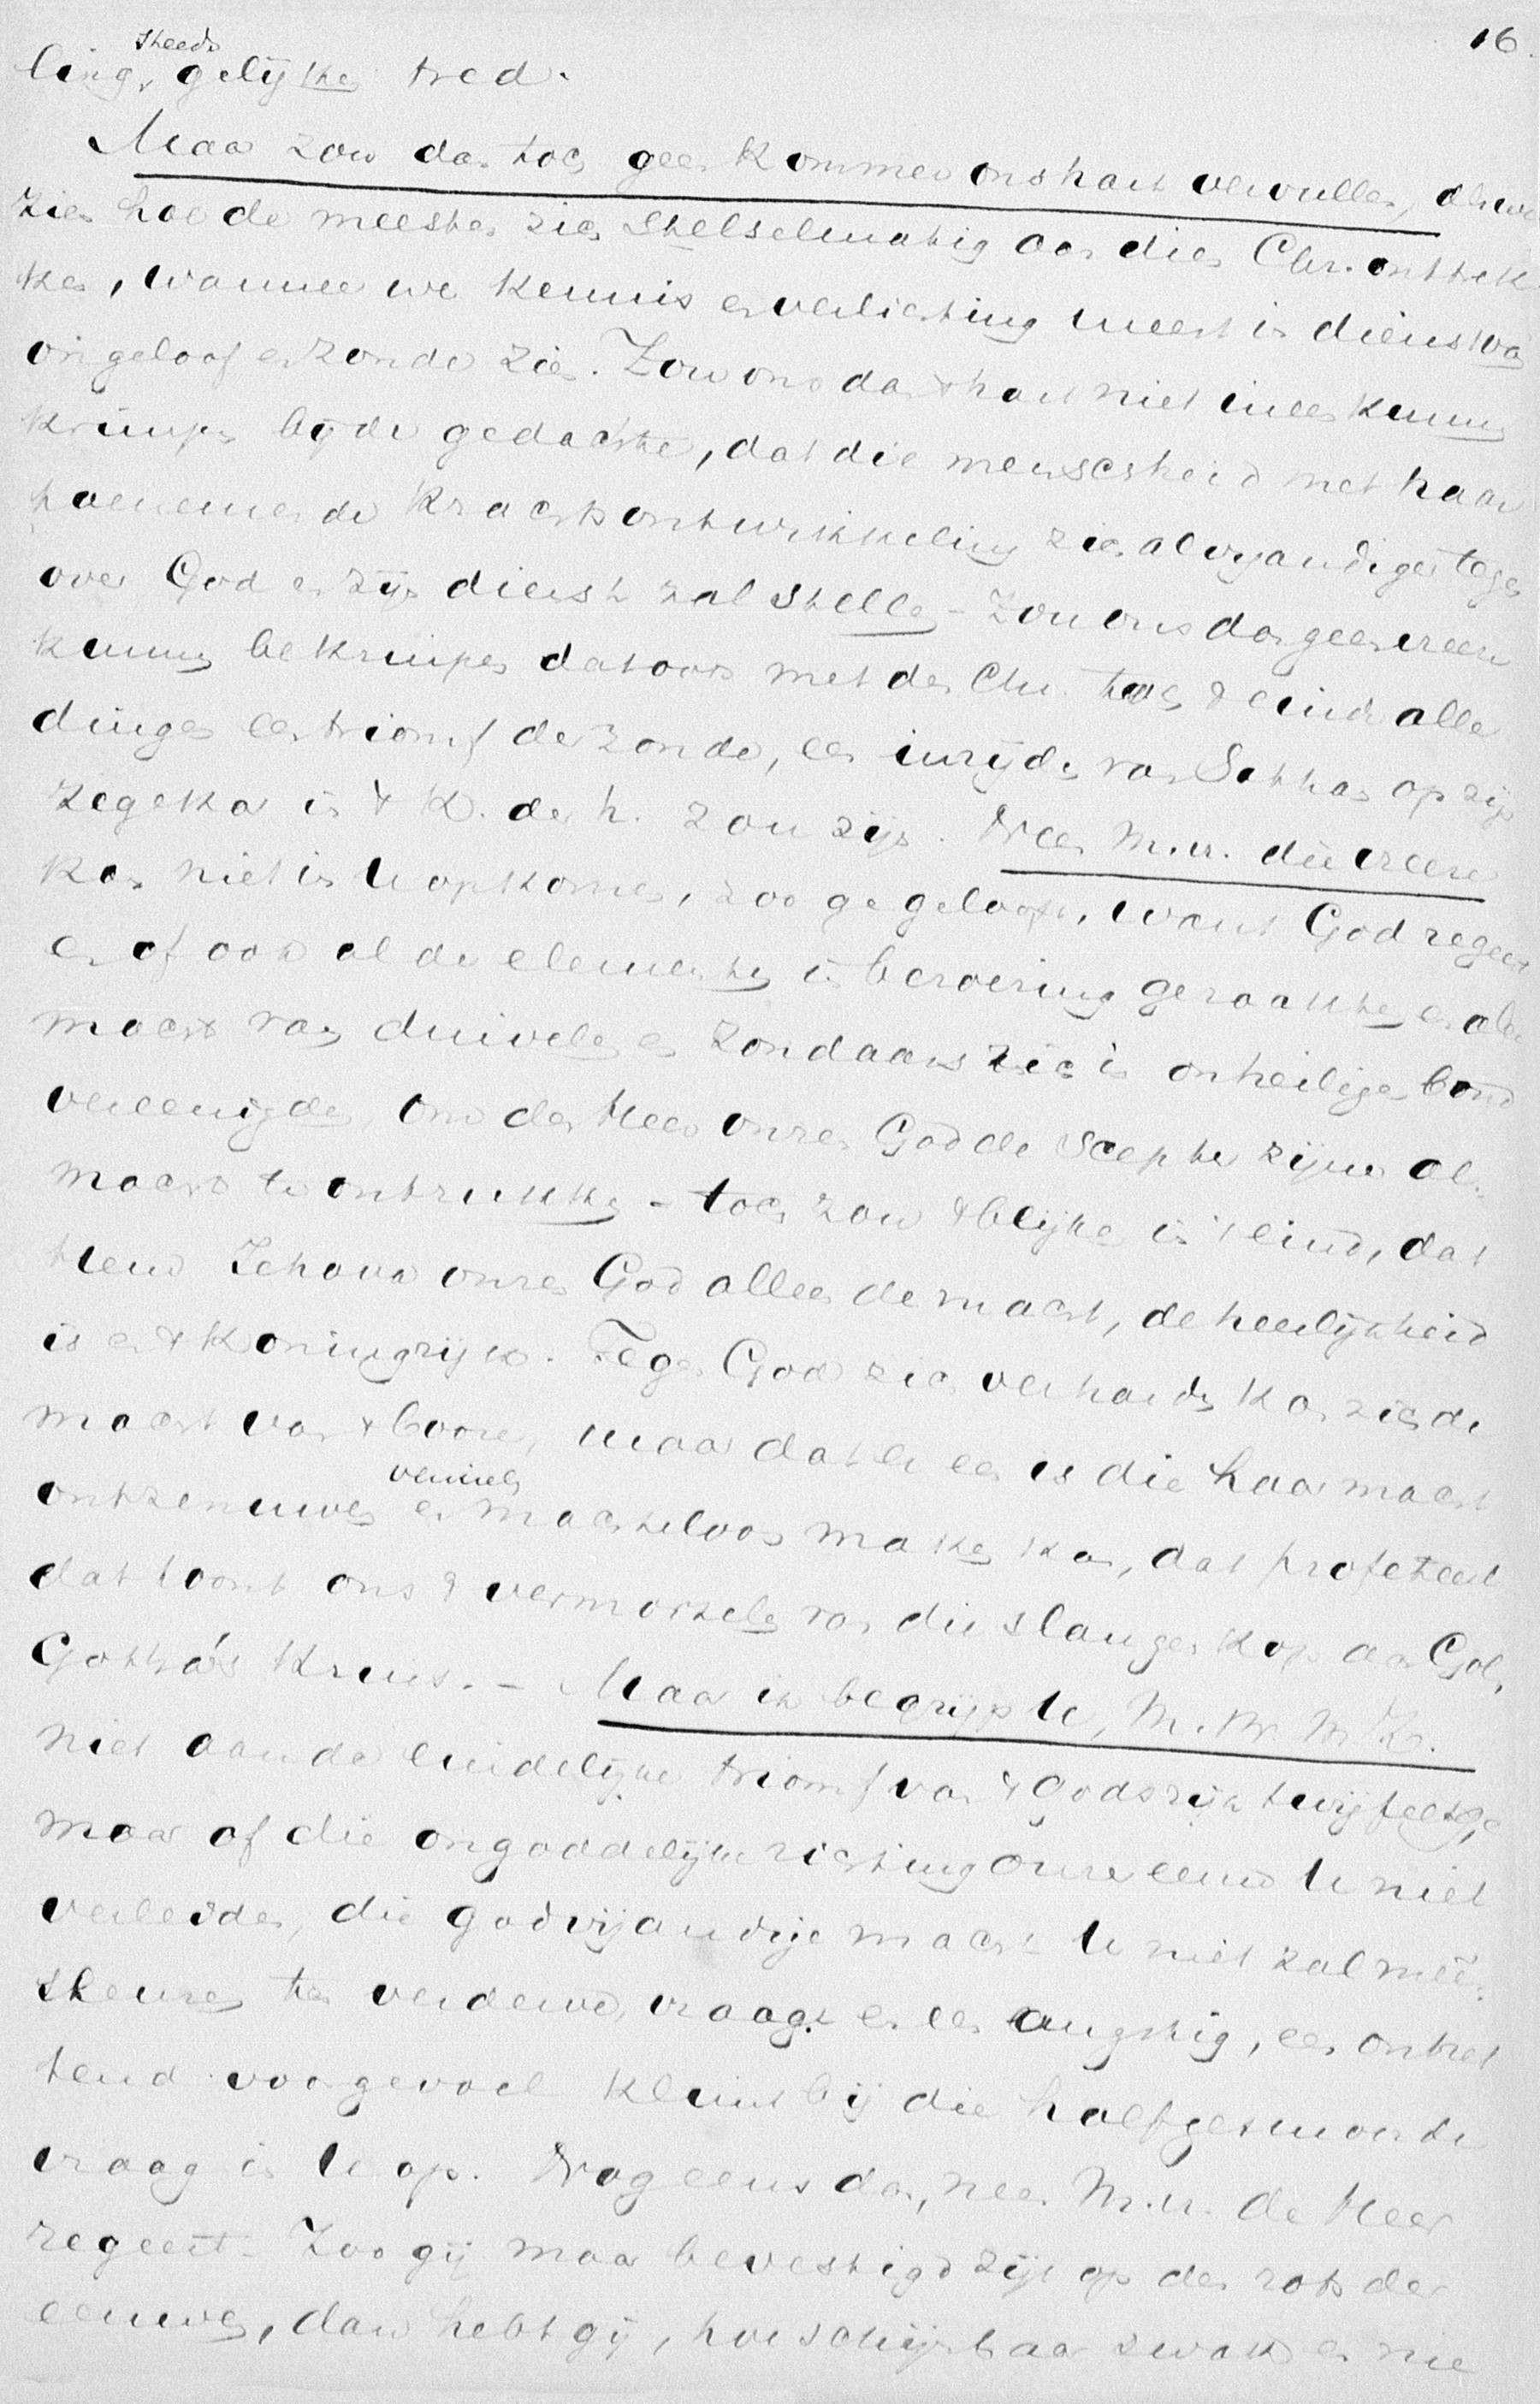 16.
steeds
ling, gelijken tred.
Maar zou dan toch geen kommer ons hart vervullen, als we
zien hoe de meesten zich stelselmatig aan dien Chr. onttrek-
ken, wanneer we kennis en verlichting meest in dienst van
ongeloof en zonde zien. Zou ons dan 't hart niet ineen kunnen
krimpen bij de gedachte, dat die menschheid met haar
toenemende krachtsontwikkeling zich al vijandiger tegen
over God en zijn dienst zal stellen - Zou ons dan geen vreeze
kunnen bekruipen dat ook met den Chr. toch 't einde aller
dingen een triomf der zonde, een inrijden van Satan op zijn
zegekar in 't K. der h. zou zijn. Neen M. v. die vreeze
kan niet in U opkomen, zoo ge gelooft, want God regeert
en of ook al de elementen in beroering geraakten en alle
macht van duivelen en zondaars zich in onheiligen bond
vereenigden, om den Heer onzen God de scepter zijner al-
macht te ontrukken - toch zou 't blijken in 't eind, dat
Heer Jehova onzen God alleen de macht, de heerlijkheid
is en 't Koningrijk. Tegen God zich verharden kan zich de
macht van 't booze, maar dat er een is die haar macht
vernielen
ontzenuwen en machteloos maken kan, dat profeteert
dat toont ons 't vermorzelen van die slangenkop aan Gol-
gotha's kruis. - Maar ik begrijp U, M. Br. Zr.
niet aan de eindelijke triomf van 't Godsrijk twijfelt ge,
maar of die ongoddelijke richting onzer eeuw U niet
verleiden, die godvijandige macht U niet zal meê-
sleuren ten verderve, vraagt er een angstig, een ontzet
tend voorgevoel klimt bij die halfgesmoorde
vraag in U op. Nog eens dan, neen M. v. de Heer
regeert. Zoo gij maar bevestigd zijt op den rots der
eeuwen, dan hebt gij, hoe schijnbaar zwak en nie